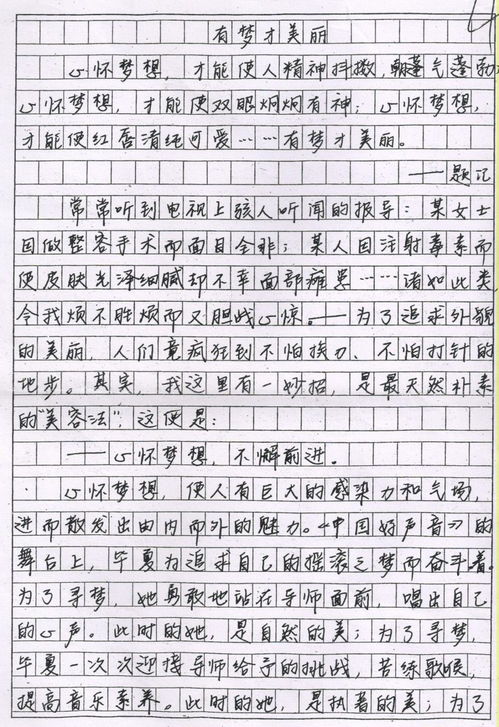 有梦才美丽
心怀梦想，才能使人精神抖擞，朝气蓬勃
心怀梦想，才能使双眼炯炯有神；心怀梦想，
才能使红唇清纯可爱……有梦才美丽。
——题记
常常听到电视上骇人听闻的报导：某女士
因做整容手术而面目全非；某人因注射毒素而
使皮肤光泽细腻却不幸面部瘫思……诸如此类
令我烦不胜烦而又胆战心惊。——为了追求外貌
的美丽，人们竟疯狂到不怕挨刀、不怕打针的
地步。其实，我这里有一妙招，是最天然朴素
的“美容法”，这便是：
——心怀梦想，不懈前进。
心怀梦想，使人有巨大的感染力和气场，
进而散发出由内而外的魅力。《中国好声音》的
舞台上，毕夏为追求自己的摇滚之梦而奋斗着。
为了寻梦，她勇敢地站在导师面前，唱出自己
的心声。此时的她，是自然的美；为了寻梦，
毕夏一次次迎接导师给予的挑战，苦练歌喉，
提高音乐素养。此时的她，是执着的美；为了